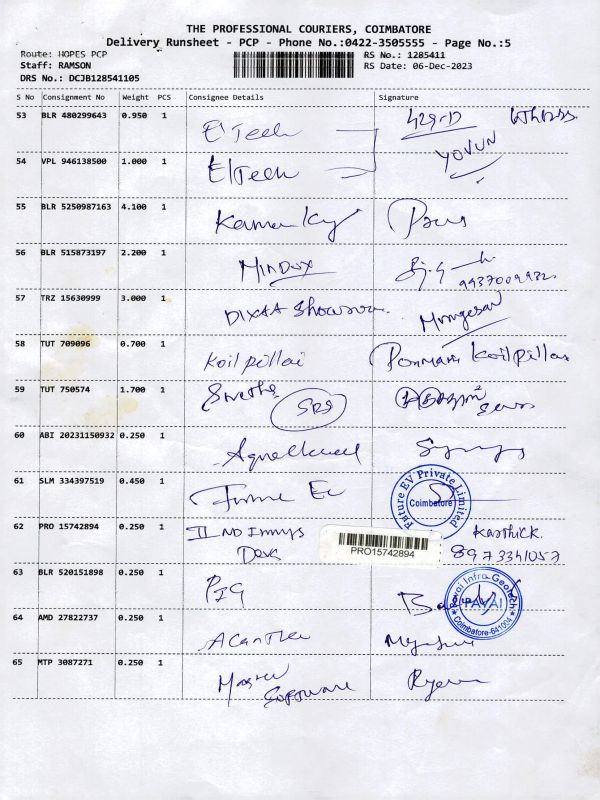 THE PROFESSIONAL COURIERS, COIMBATORE
Delivery Runsheet - PCP - Phone No.:0422-3505555 - Page No.:5
Route: HOPES PCP
RS No.: 1285411
Staff: RAMSON
RS Date: 06-Dec-2023
DRS No.: DCJB128541105
S No Consignment No Weight PCS Consignee Details Signature
53 BLR 480299643 0.950 1 E Tech 429-D
54 VPL 946138500 1.000 1 E/Tech YOVUN
55 BLR 5250987163 4.100 1
56 BLR 515873197 2.200 1 MINDOX
9937009932
57 TRZ 15630999 3.000 1 DIXAA Showroom Murugesan
58 TUT 709096 0.700 1 Koil pillai Ponmani Koilpillai
59 TUT 750574 1.700 1 Swetha SRS
60 ABI 20231150932 0.250 1
61 SLM 334397519 0.450 1 Future EV
Future EV Private Limited
Coimbatore
62 PRO 15742894 0.250 1 II ND Innys Karthick.
PRO15742894
8973341057
63 BLR 520151898 0.250 1 PIG
Pavai Infra Geotech
PAVAI
Coimbatore-641004
64 AMD 27822737 0.250 1
65 MTP 3087271 0.250 1 Master
Software